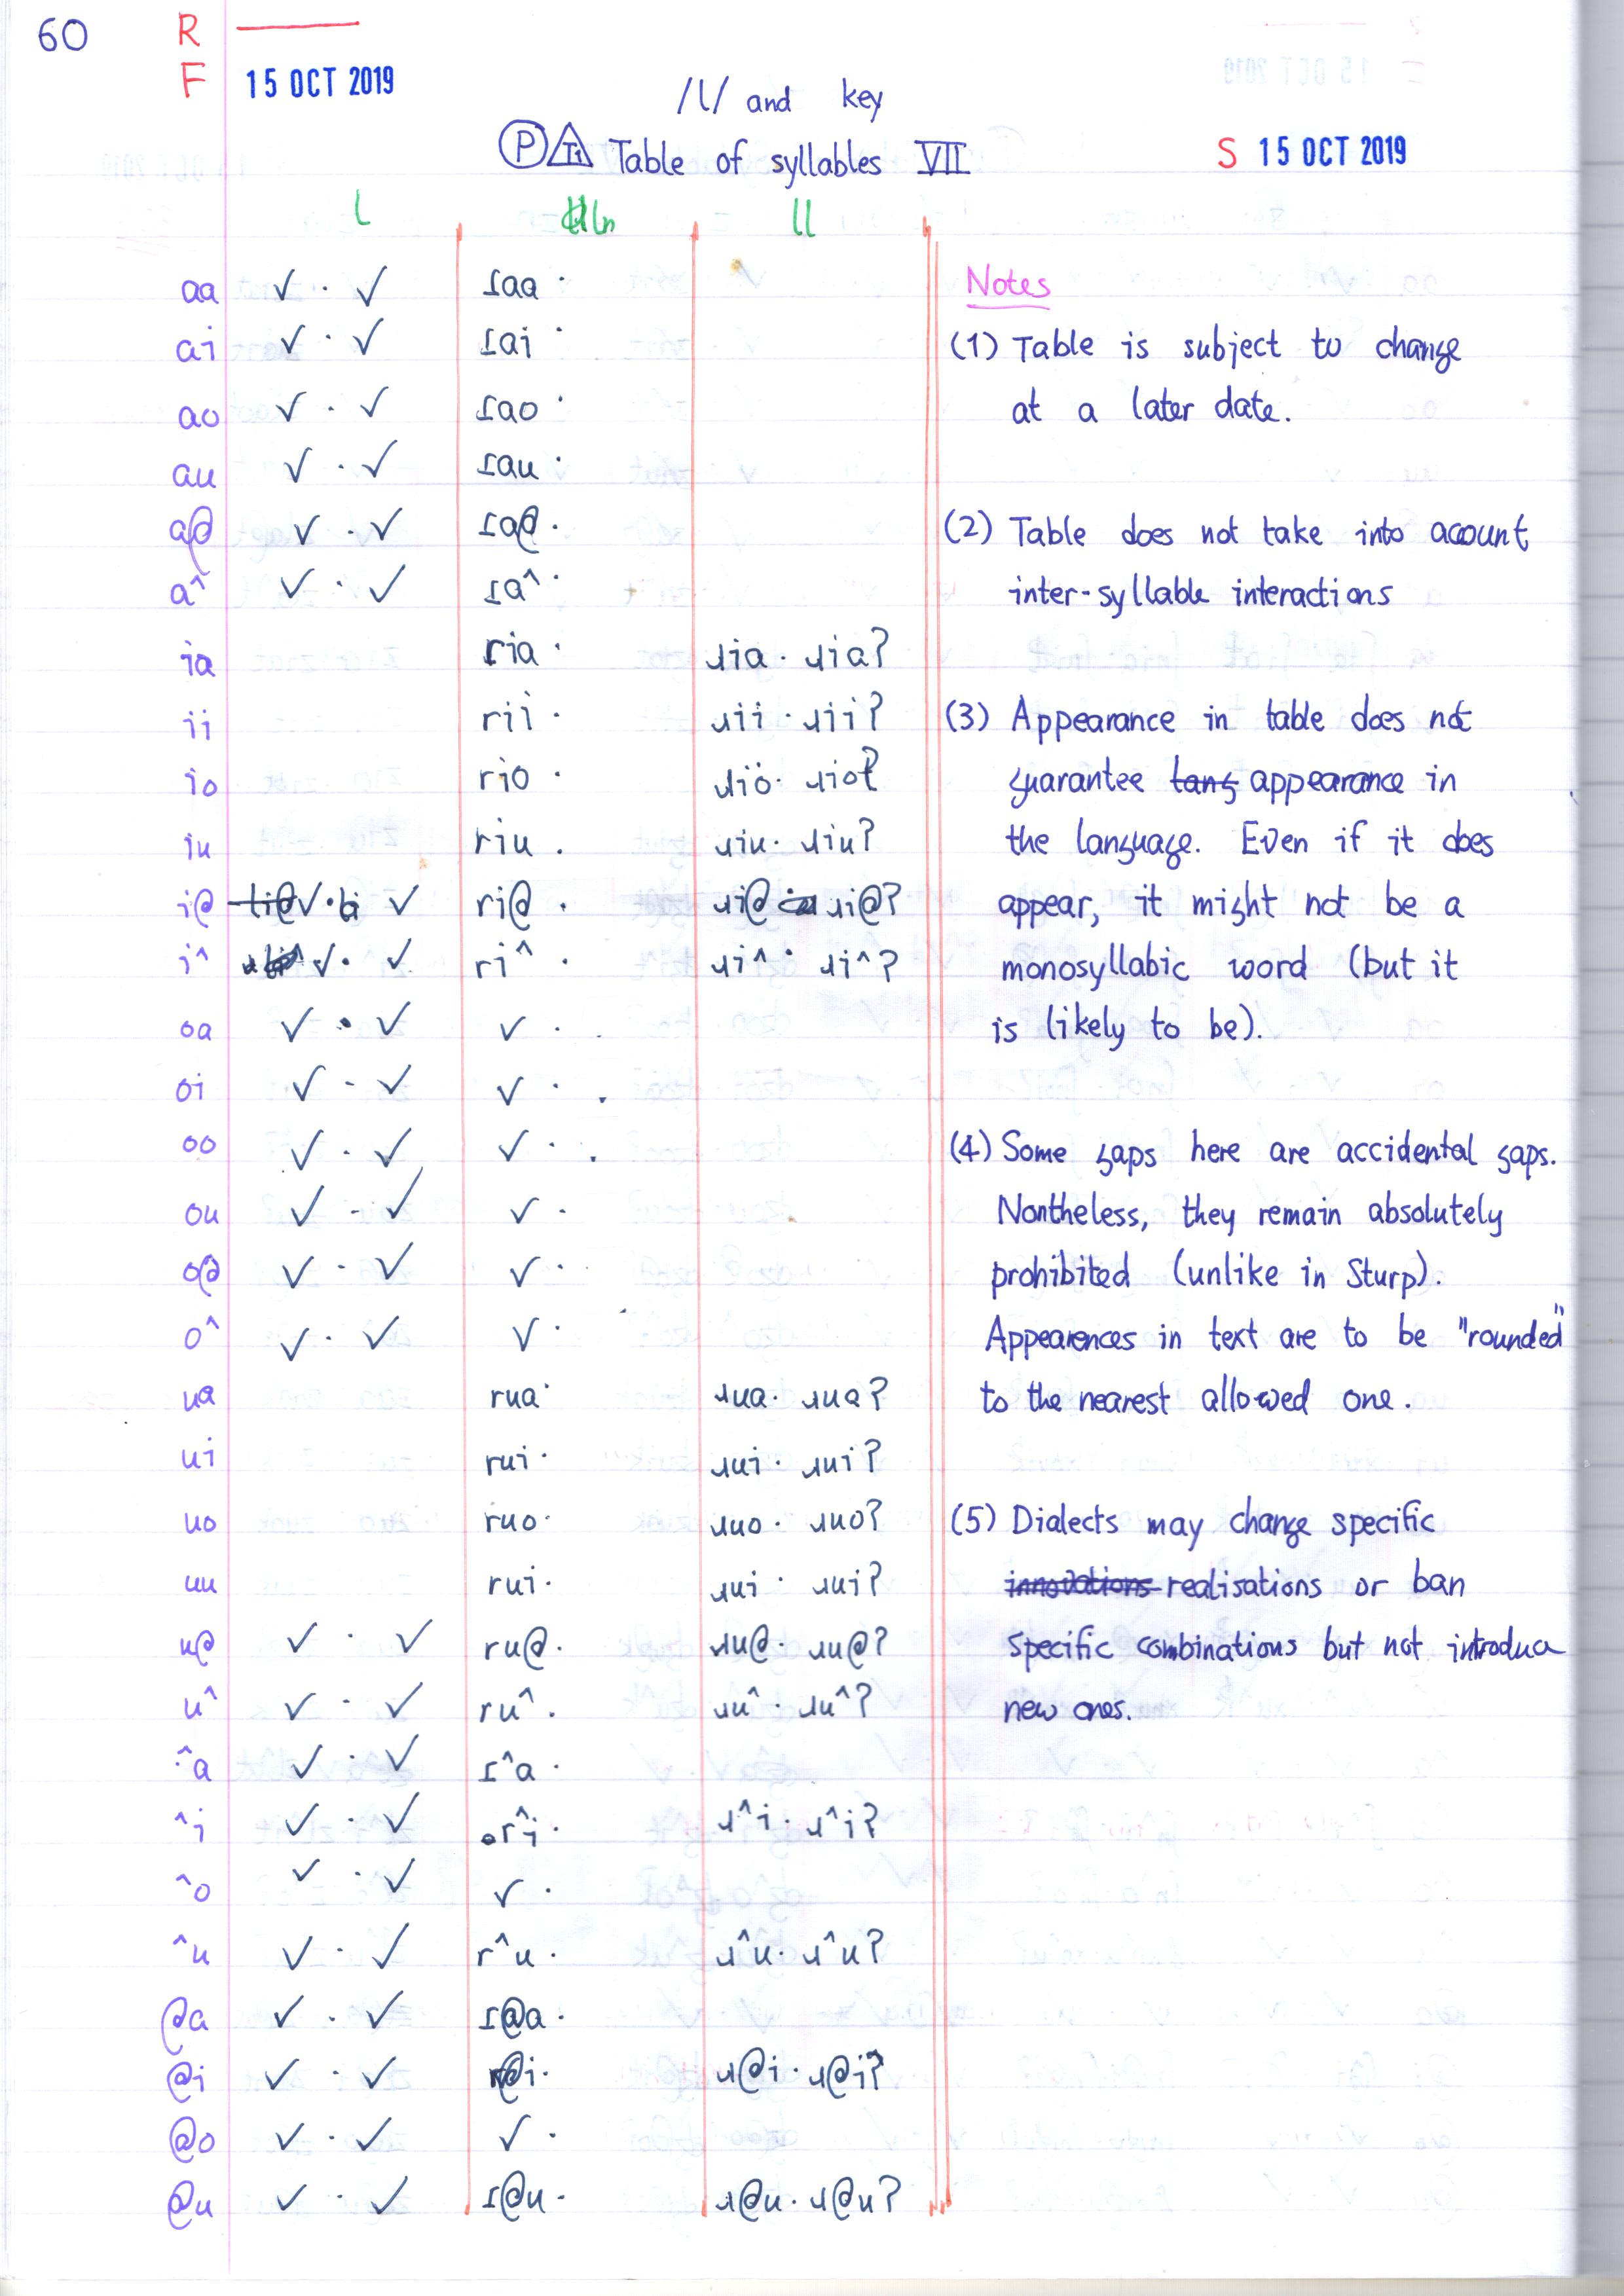 60 R
F 15 OCT 2019
/l/ and key
P T1 Table of syllables VII S 15 OCT 2019
l ln ll
aa ✓ · ✓ ɾaa ·
ai ✓ · ✓ ɾai ·
ao ✓ · ✓ ɾao ·
au ✓ · ✓ ɾau ·
a@ ✓ · ✓ ɾa@ ·
a^ ✓ · ✓ ɾa^ ·
ia ria · ɹia · ɹia?
ii rii · ɹii · ɹii?
io rio · ɹio · ɹio?
iu riu · ɹiu · ɹiu?
i@ ✓ · ✓ ri@ · ɹi@ · ɹi@?
i^ ✓ · ✓ ri^ · ɹi^ · ɹi^?
oa ✓ · ✓ ✓ ·
oi ✓ · ✓ ✓ ·
oo ✓ · ✓ ✓ ·
ou ✓ · ✓ ✓ ·
o@ ✓ · ✓ ✓ ·
o^ ✓ · ✓ ✓ ·
ua rua · ɹua · ɹua?
ui rui · ɹui · ɹui?
uo ruo · ɹuo · ɹuo?
uu rui · ɹui · ɹui?
u@ ✓ · ✓ ru@ · ɹu@ · ɹu@?
u^ ✓ · ✓ ru^ · ɹu^ · ɹu^?
^a ✓ · ✓ ɾ^a ·
^i ✓ · ✓ r^i · ɹ^i · ɹ^i?
^o ✓ · ✓ ✓ ·
^u ✓ · ✓ r^u · ɹ^u · ɹ^u?
@a ✓ · ✓ ɾ@a ·
@i ✓ · ✓ r@i · ɹ@i · ɹ@i?
@o ✓ · ✓ ✓ ·
@u ✓ · ✓ ɾ@u · ɹ@u · ɹ@u?
Notes
(1) Table is subject to change
at a later date.
(2) Table does not take into account
inter-syllable interactions
(3) Appearance in table does not
guarantee tang appearance in
the language. Even if it does
appear, it might not be a
monosyllabic word (but it
is likely to be).
(4) Some gaps here are accidental gaps.
Nontheless, they remain absolutely
prohibited (unlike in Sturp).
Appearences in text are to be "rounded"
to the nearest allowed one.
(5) Dialects may change specific
innovations realisations or ban
specific combinations but not introduce
new ones.